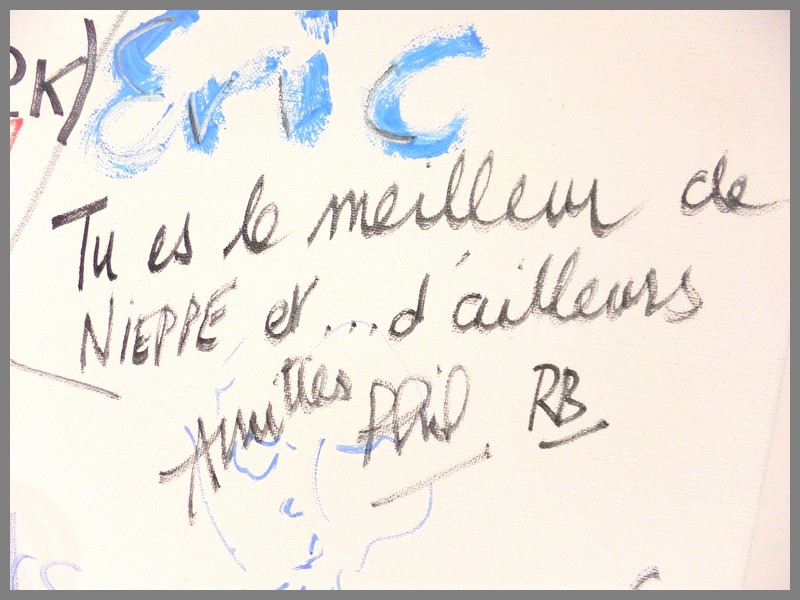 RK)
Eric
Tu es le meilleur de
NIEPPE et...d'ailleurs
Amitiés Phil RB